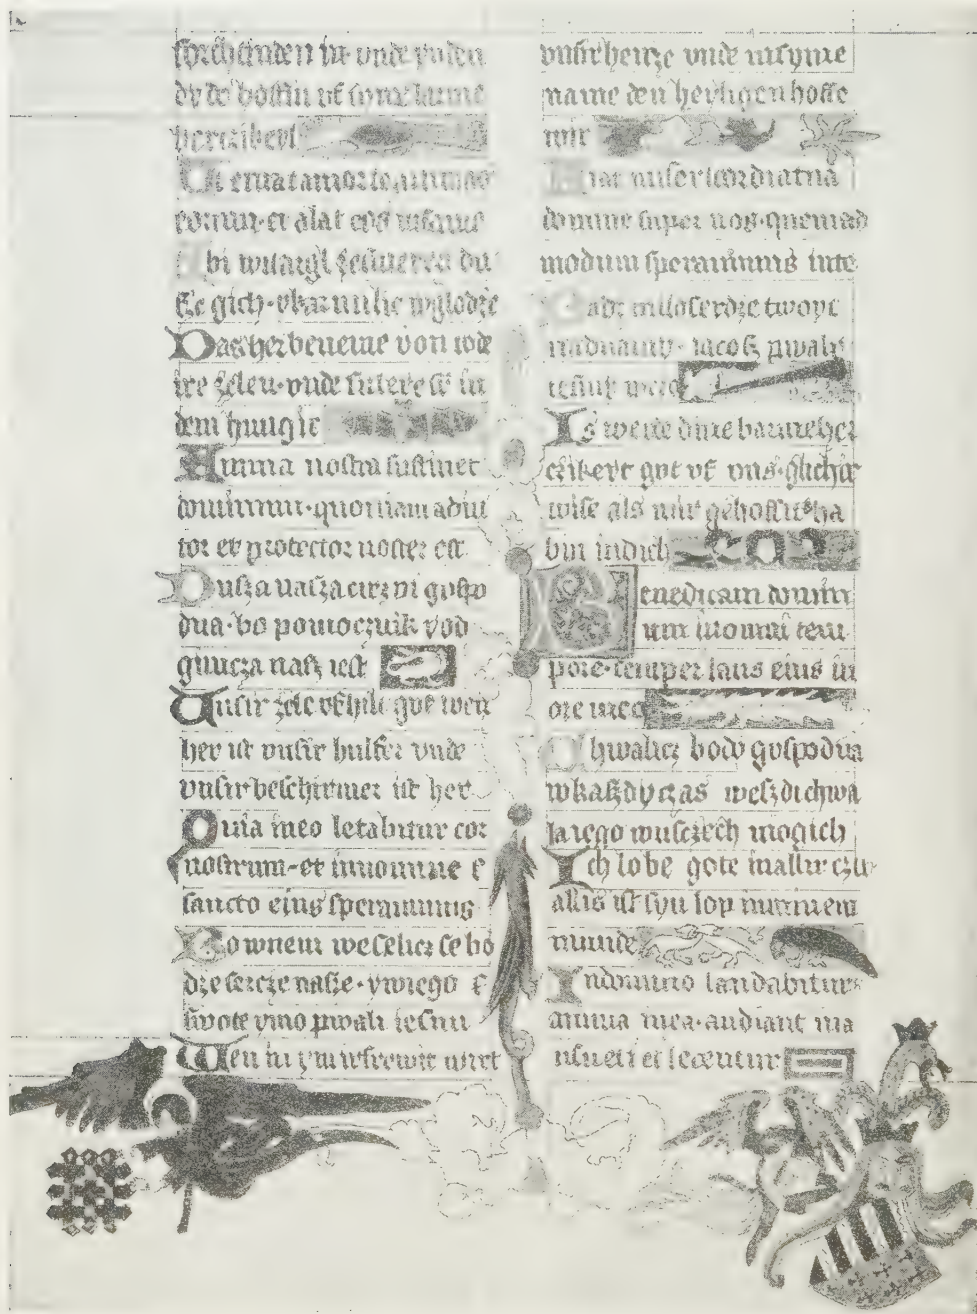 forchtinden in vnde vf den
dy do hoffin vf syne barme
herczikeyt
Ut eruat a morte animas
eorum·et alat eos in fame
by witargl
gich·
Das her beneme von tode
ire zelen·vnde futere se in
dem hungir
Anima nostra sustinet
dominum·quoniam adiu
tor et protector noster est
Dusza nasza cirzpi gospo
dna·bo pomocznik y ob
gimcza nasz iest
Unsir zele
her ist vnsir hulfer vnde
vnsir beschirmer ist her
Quia in eo letabitur cor
nostrum·et in nomine
sancto eius sperauimus
Bo w nem weselicz se bo
dze sercze nasze·y w iego
swote ymo pwali iesmi
Wen in ym irfrewit wirt
vnsir hercze vnde in syme
name den heyligen hoffe
wir
Fiat misericordia tua
domine super nos·quemad
modum sperauimus in te
miloserdze twoye
nad nami· iacosz pwali
iesmy w cze
Is werde dine barmeher
czikeyt got vf vns·glicher
wise als wir gehoffit ha
bin in dich
Benedicam domin
um in omni tem
pore·semper laus eius in
ore meo
Chwalicz bodo gospodna
w kaszdy czas weszdi chwa
la iego w usczech mogich
Ich lobe gote in allir czit
allis ist syn lop in mynem
munde
In domino laudabitur
anima mea·audiant ma
nsueti et letentur